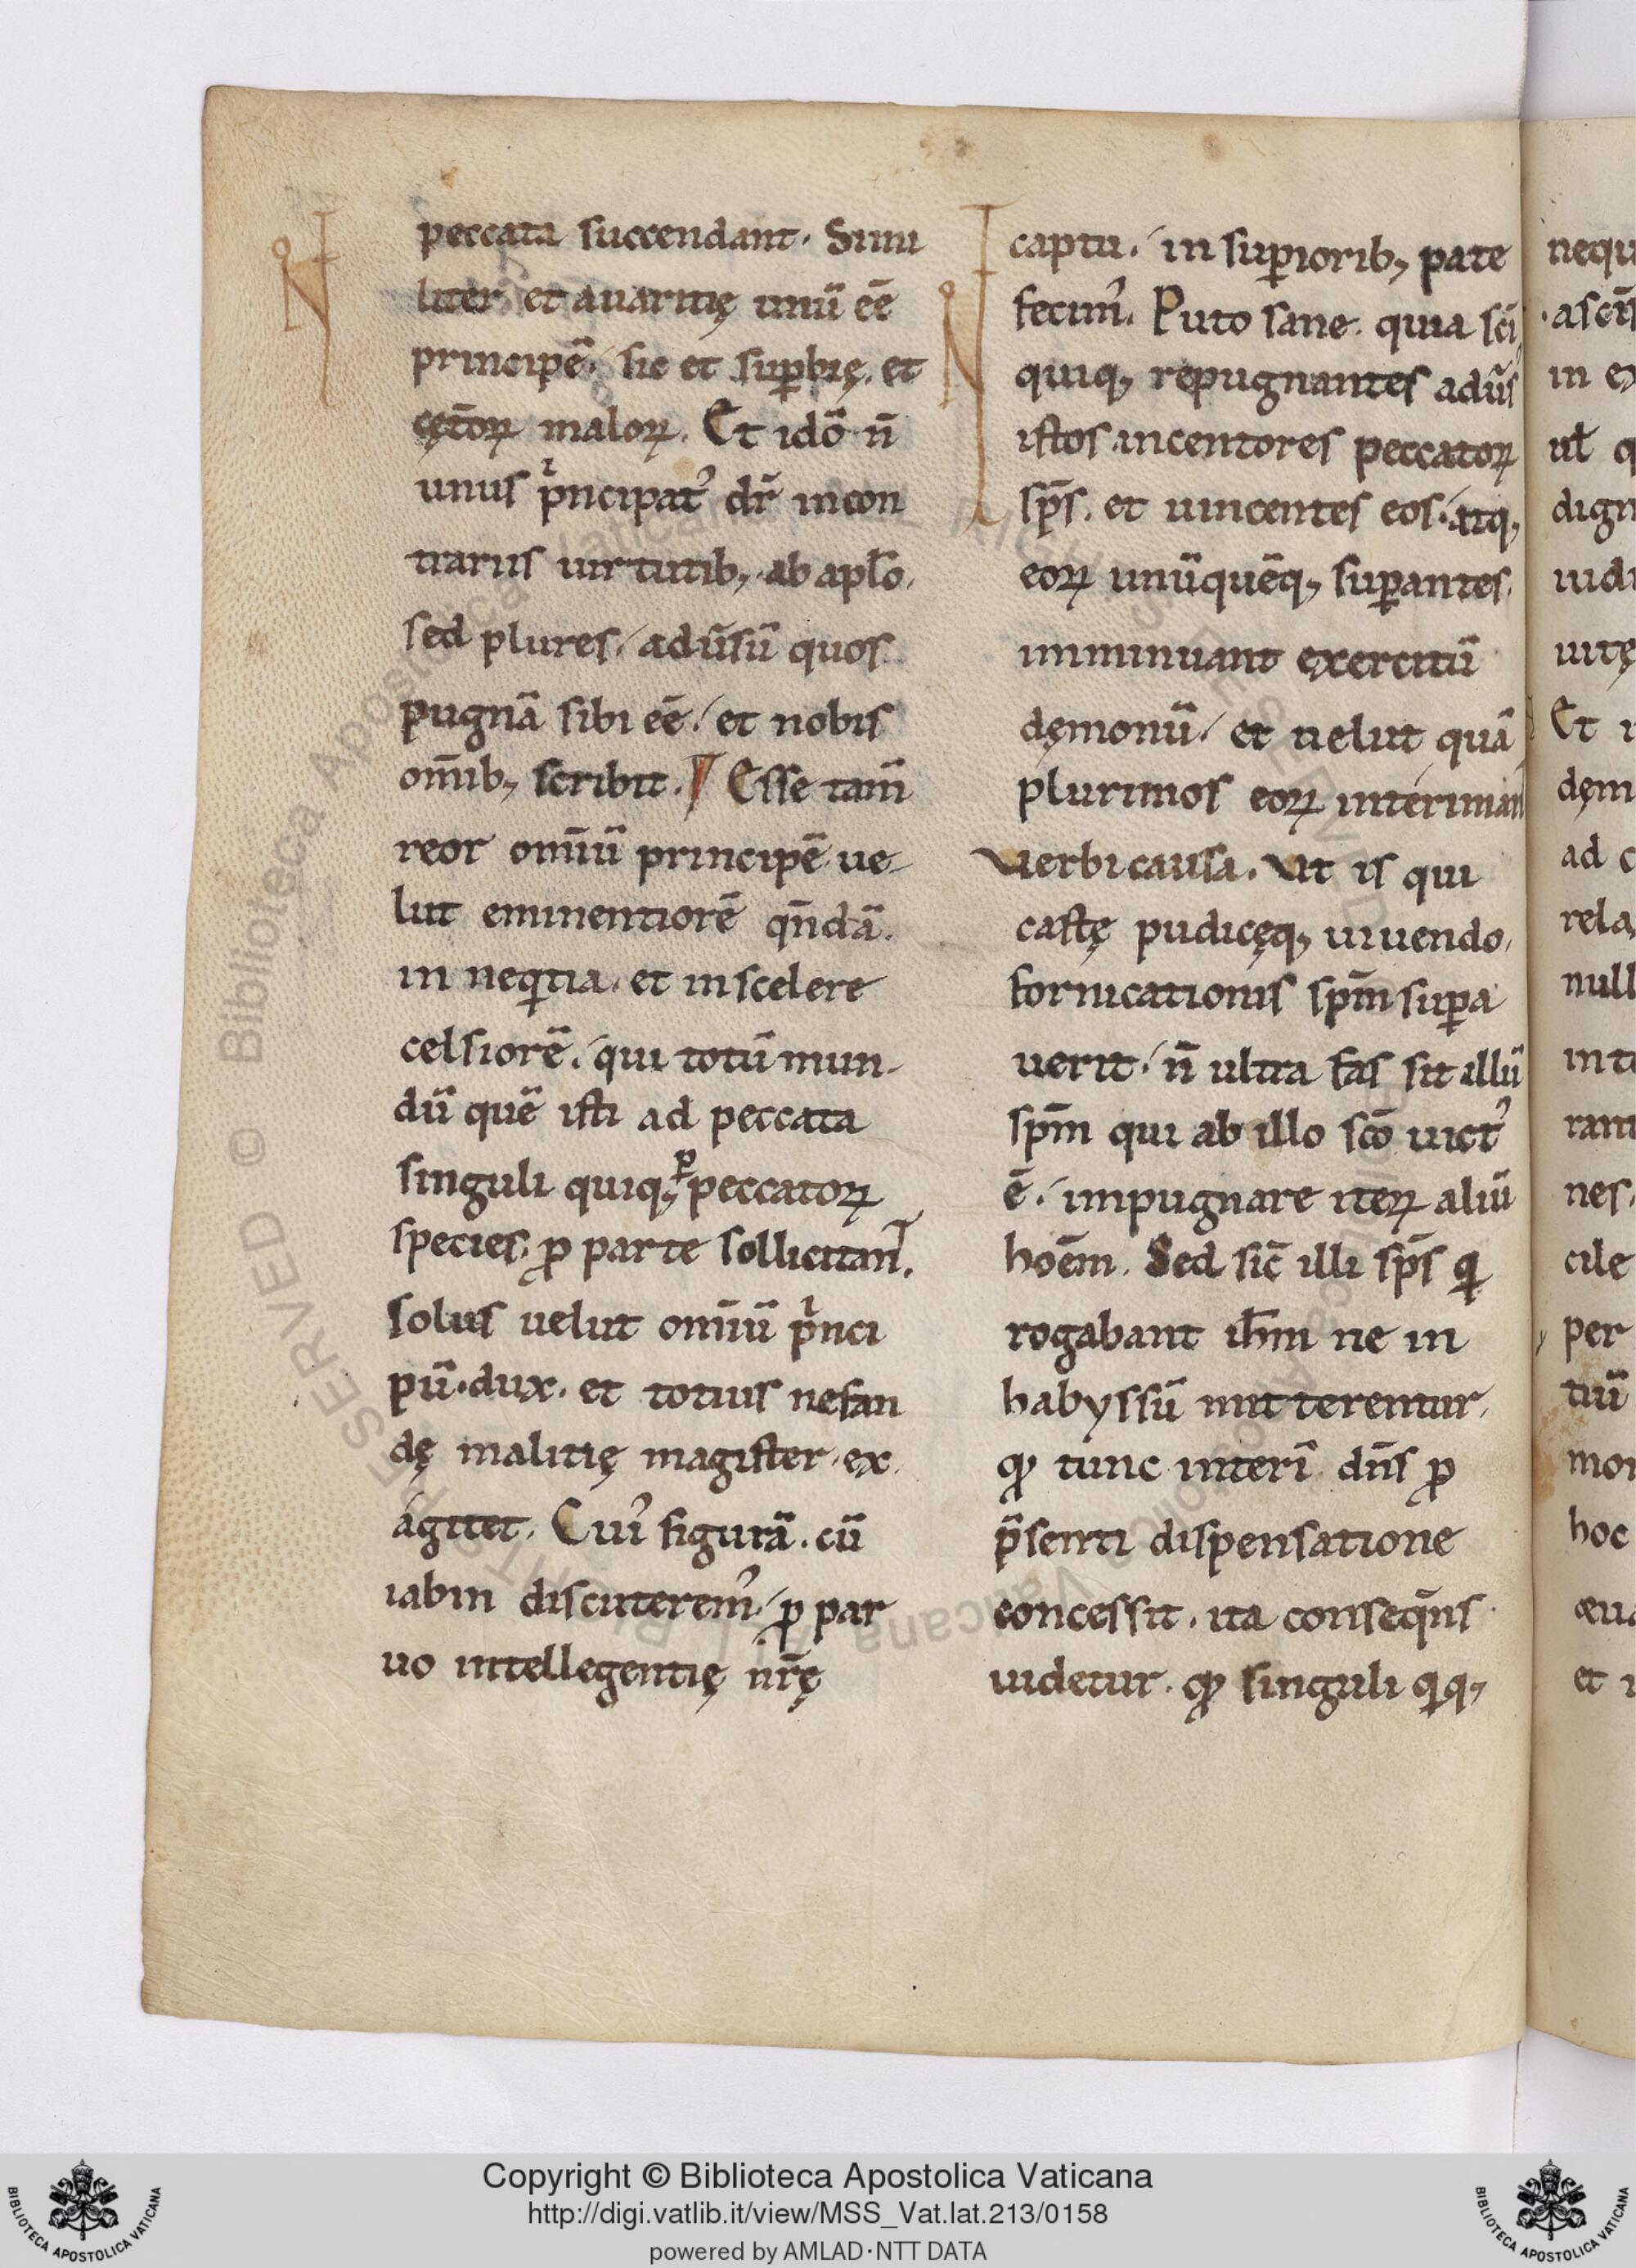 peccata succendant. Simi
liter et auaritię unū eē
principē. sic et sup̄bię. et
cęt̄oꝝ maloꝝ. Et idō n̄
unus pͥncipat᷒ dr̄ in con
trariis uirtutib; ab apl̄o.
sed plures. adū̄sū quos
pugnā sibi eē. et nobis
om̄ib; scribit. Esse tam̄
reor om̄iū principē ue-
lut eminentiorē qn̄dā.
in neqͥtia. et in scelere
celsiorē. qui totū mun-
dū quē isti ad peccata
singuli quiq; ꝑ peccatoꝝ
species, ꝓ parte sollicitant.
solus uelut om̄iū pͥnci
pū. dux. et totius nefan
dę malitię magister. ex
agitet. Cui᷒ figurā. cū
iabin discuterem᷒. ꝓ par
uo intellegentię nr̄ę
captu. in sup̄iorib; pate
fecim᷒. Puto sane. quia sc̄i
quiq; repugnantes adūs̄
istos incentores peccatoꝝ
sp̄s. et uincentes eos. atq;
eoꝝ unūquēq; suꝑantes.
imminuant exercitū
dęmonū. et uelut quā
plurimos eoꝝ interimant
Uerbi causa. Ut is qui
castę pudicęq; uiuendo.
fornicationis sp̄m suꝑa
uerit. n̄ ultra fas sit illū
sp̄m qui ab illo sc̄o uict᷒
ē. impugnare iteꝝ aliū
hoēm. Sed sic̄ illi sp̄s qͥ
rogabant ih̄m ne in
habyssū mitterentur.
qͦ tunc interī dn̄s ꝓ
p̄senti dispensatione
concessit. ita conseq̄ns
uidetur. qͦ singuli qͥq;
nequ
ascn̄
in ex
ul̄ q
dign
iudi
uitę
Et
dęm
ad c
rela
null
int
ram
nes.
cile
per
tiū
mor
hoc
æua
et
Biblioteca Apostolica Vaticana
Copyright © Biblioteca Apostolica Vaticana
http://digi.vatlib.it/view/MSS_Vat.lat.213/0158
powered by AMLAD·NTT DATA
BIBLIOTECA APOSTOLICA VATICANA
BIBLIOTECA APOSTOLICA VATICANA